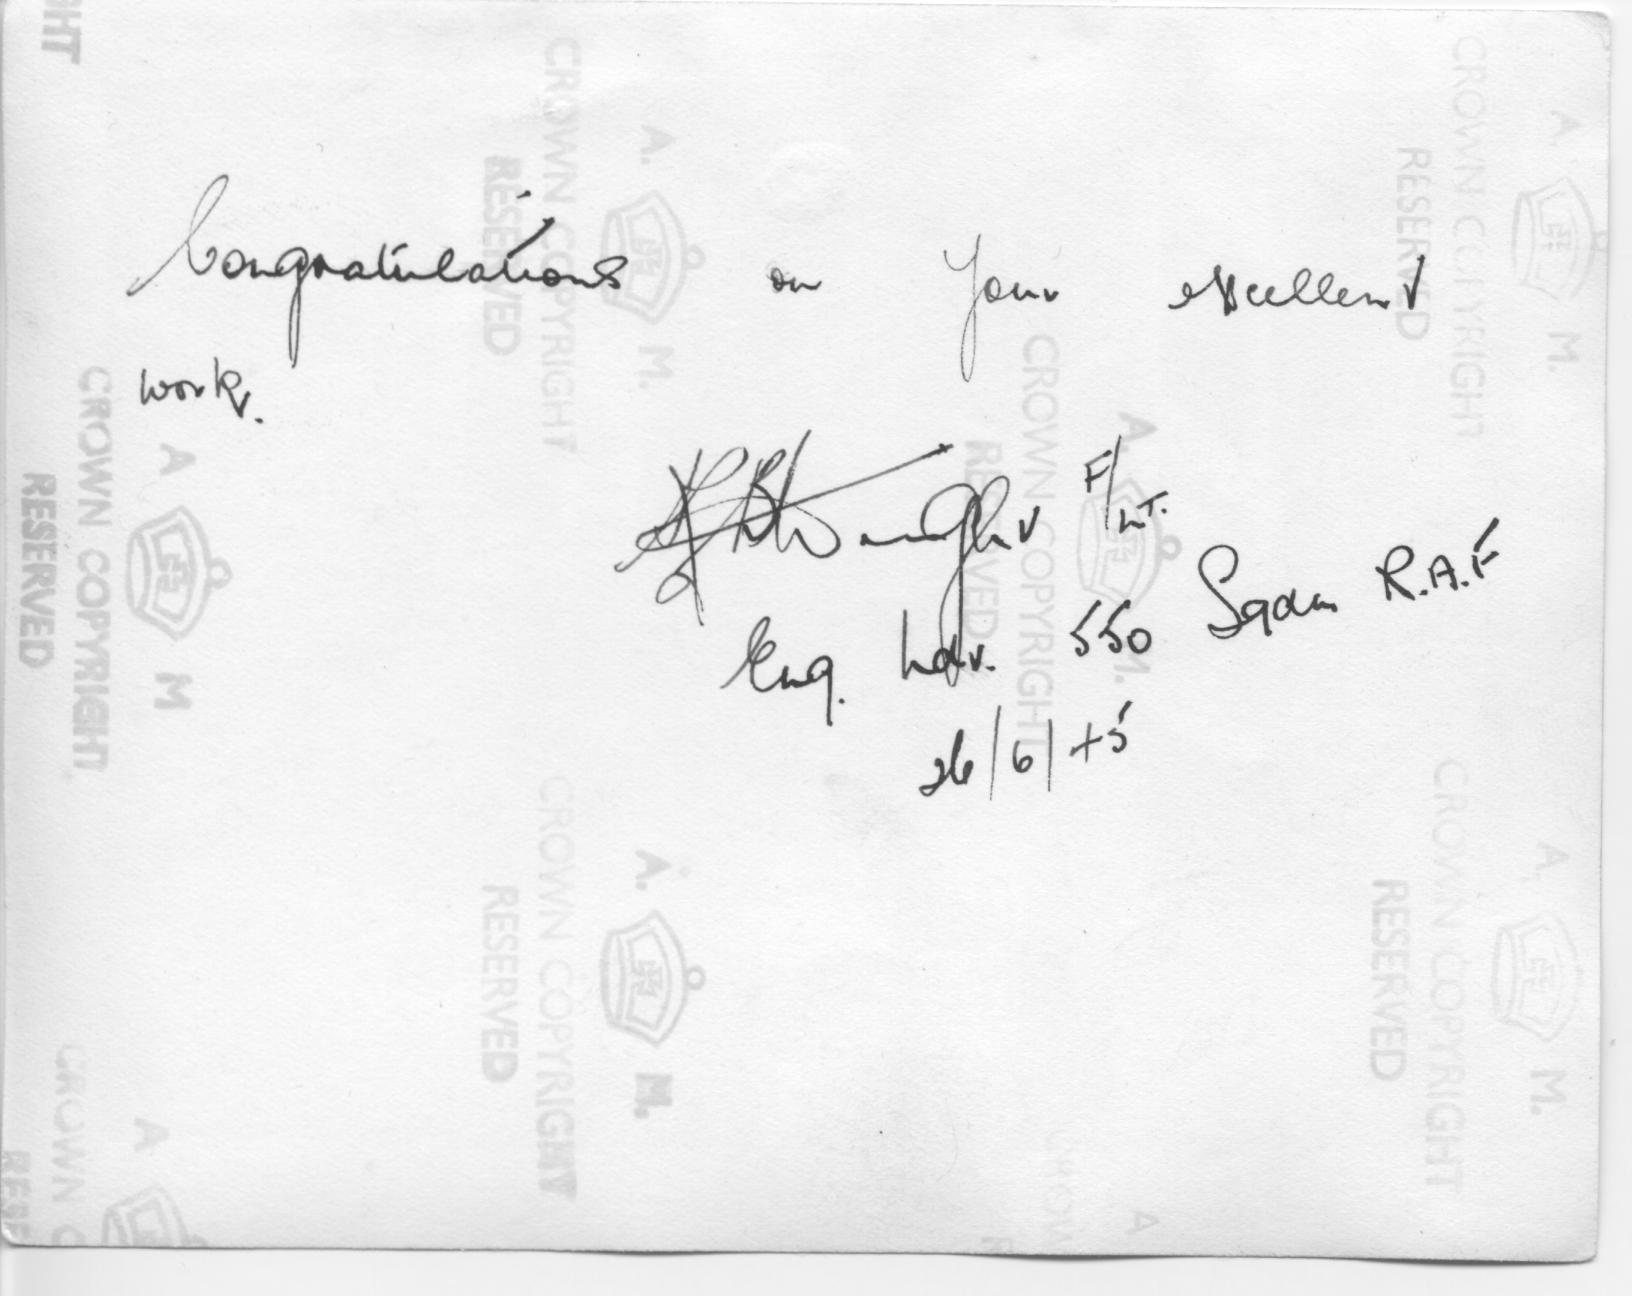 Congratulations on your excellent
work.
F/LT.
Eng. Ldr. 550 Sqdn R.A.F
26/6/45
A. M.
CROWN COPYRIGHT
RESERVED
A. M.
CROWN COPYRIGHT
RESERVED
A. M.
CROWN COPYRIGHT
RESERVED
A M
CROWN COPYRIGHT
RESERVED
A. M.
CROWN COPYRIGHT
RESERVED
A. M.
CROWN COPYRIGHT
RESERVED